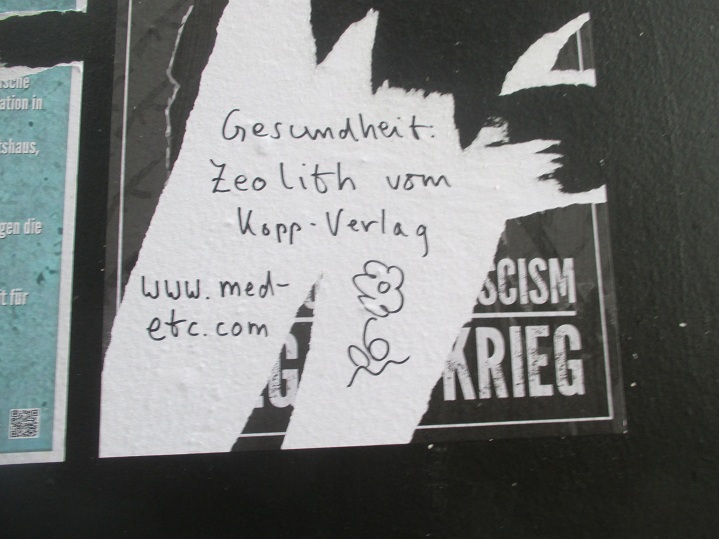 ation in
shaus,
gen die
t für
Gesundheit:
Zeolith vom
Kopp-Verlag
www.med-
etc.com
SCISM
G KRIEG